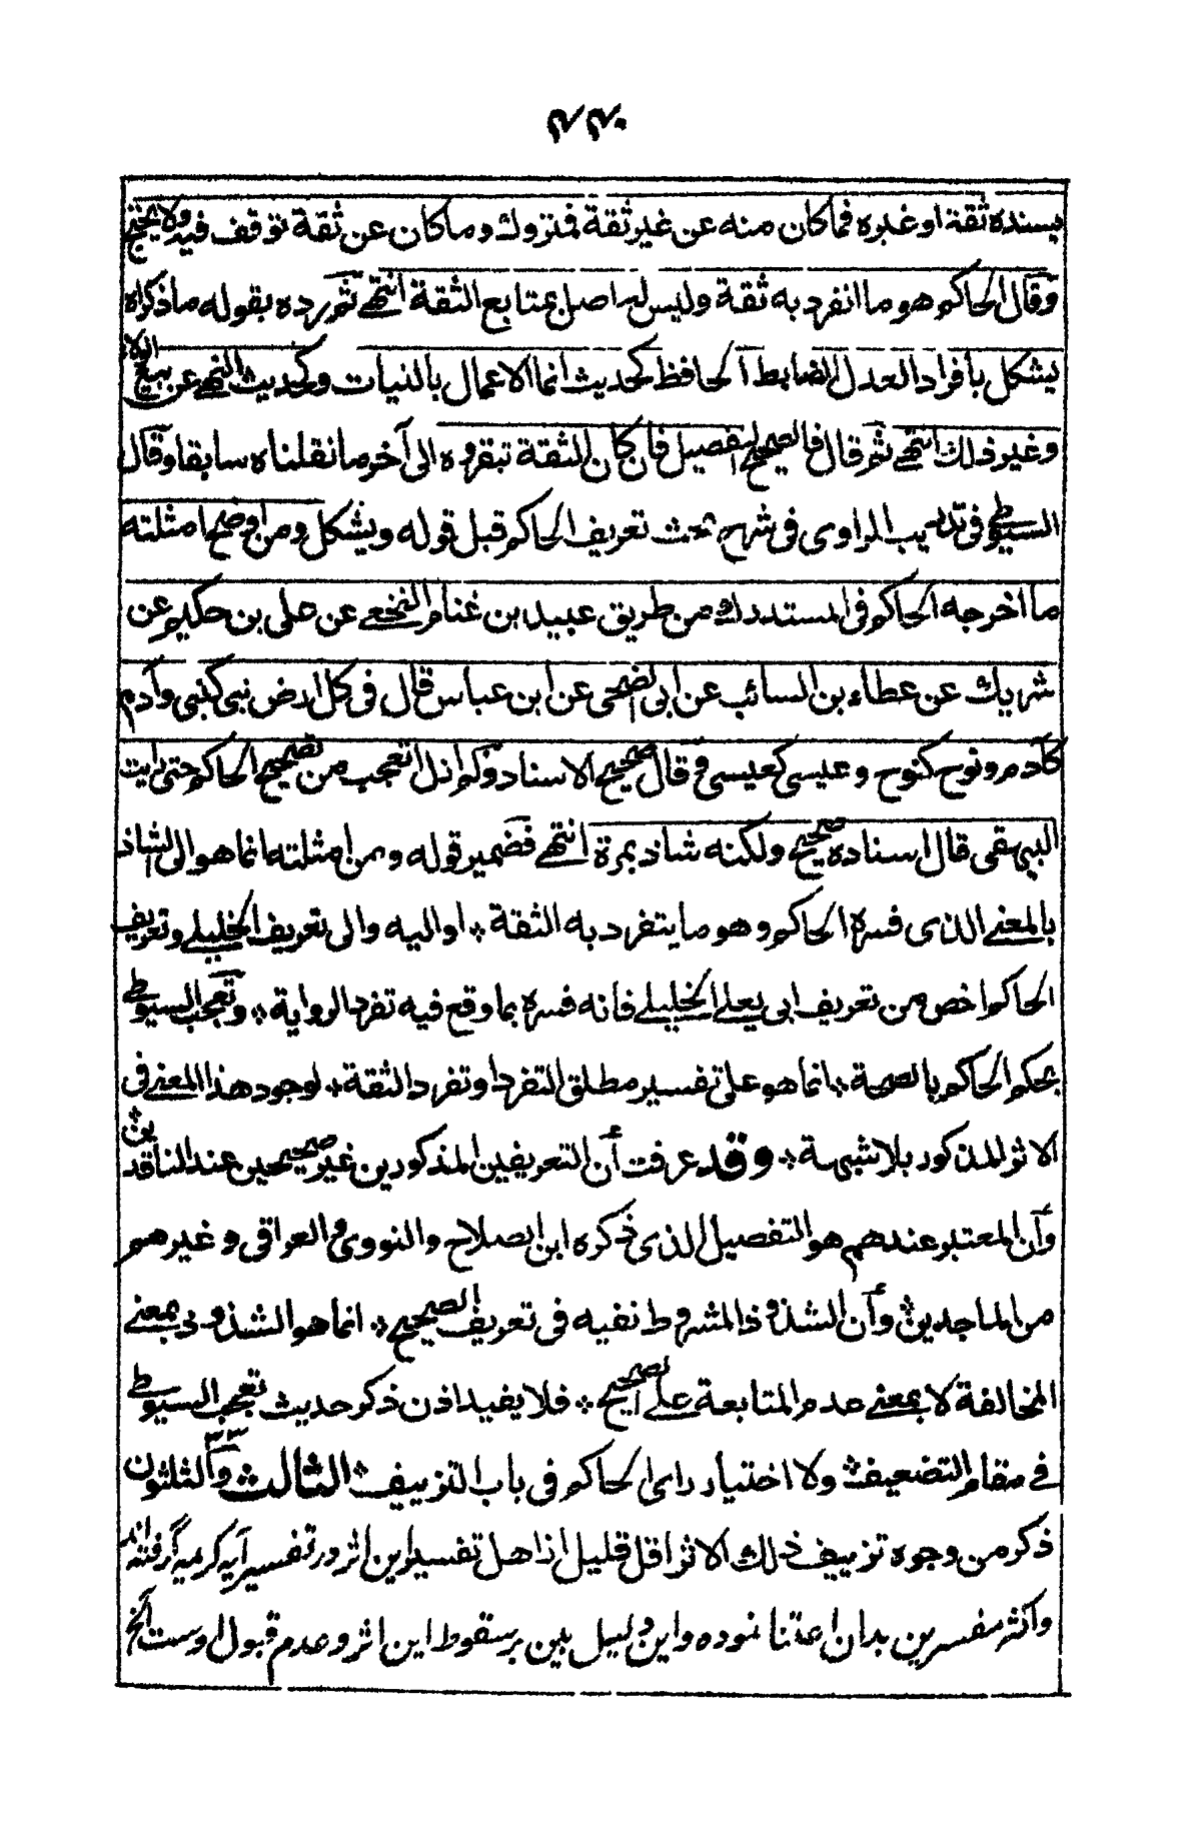 بسنده ثقة او غيره فما كان منه عن غير ثقة فمتروك وما كان عن ثقة توقف فيه ولا يحتج
وقال الحاكم هو ما انفرد به ثقة وليس له اصل بمتابع الثقة انتهى ثم رده بقوله ما ذكراه
يشكل بافراد العدل الضابط الحافظ كحديث انما الاعمال بالنيات وكحديث النهى عن بيع الولاء
وغير ذلك انتهى ثم قال فالصحيح التفصيل فان كان الثقة بتفرده الى آخر ما نقلناه سابقا وقال
السيوطى فى تدريب الراوى فى شرح بحث تعريف الحاكم قبل قوله ويشكل ومن اوضح امثلته
ما اخرجه الحاكم فى المستدرك من طريق عبيد بن غنام النخعى عن على بن حكيم عن
شريك عن عطاء بن السائب عن ابى الضحى عن ابن عباس قال فى كل ارض نبى كنبى وآدم
كآدم ونوح كنوح وعيسى كعيسى وقال صحيح الاسناد ولم ازل اتعجب من تصحيح الحاكم حتى رايت
البيهقى قال اسناده صحيح ولكنه شاذ بمرة انتهى فضمير قوله ومن امثلته انما هو الى الشاذ
بالمعنى الذى فسره الحاكم وهو ما يتفرد به الثقة * او اليه والى تعريف الخليلى وتعريف
الحاكم اخص من تعريف ابى يعلى الخليلى فانه فسره بما وقع فيه تفرد الرواية * وتعجب السيوطى
بحكم الحاكم بالصحة * انما هو على تفسير مطلق التفرد او تفرد الثقة * لوجود هذا المعنى فى
الاثر المذكور بلا شبهة * وقد عرفت أن التعريفين المذكورين غير صحيحين عند الناقدين *
وأن المعتبر عندهم هو التفصيل الذى ذكره ابن الصلاح والنووى والعراقى وغيرهم
من الماجدين * وأن الشذوذ المشروط نفيه فى تعريف الصحيح * انما هو الشذوذ بمعنى
المخالفة لا بمعنى عدم المتابعة على الصحيح * فلا يفيد اذن ذكر حديث تعجب السيوطى
فى مقام التضعيف * ولا اختيار راى الحاكم فى باب التزييف * الثالث والثلثون
ذكر من وجوه تزييف ذلك الاثر اقل قليل از اهل تفسير اين اثر ور تفسير آيه كريمه گرفته اند
واكثر مفسرين بدان اعتنا نموده واين دليل بين برسقوط اين اثر وعدم قبول اوست الخ